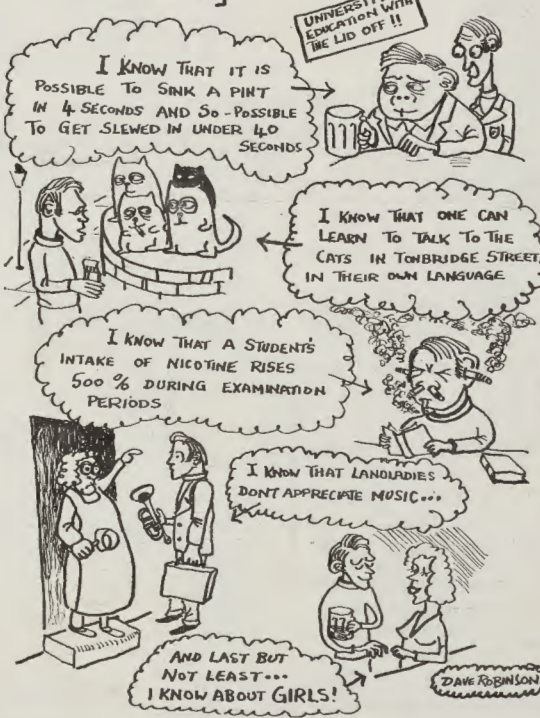 UNIVERSITY
EDUCATION WITH
THE LID OFF!!
I KNOW THAT IT IS
POSSIBLE TO SINK A PINT
IN 4 SECONDS AND SO - POSSIBLE
TO GET SLEWED IN UNDER 40
SECONDS
I KNOW THAT ONE CAN
LEARN TO TALK TO THE
CATS IN TONBRIDGE STREET,
IN THEIR OWN LANGUAGE
I KNOW THAT A STUDENT'S
INTAKE OF NICOTINE RISES
500 % DURING EXAMINATION
PERIODS
I KNOW THAT LANDLADIES
DON'T APPRECIATE MUSIC...
AND LAST BUT
NOT LEAST...
I KNOW ABOUT GIRLS!
DAVE ROBINSON